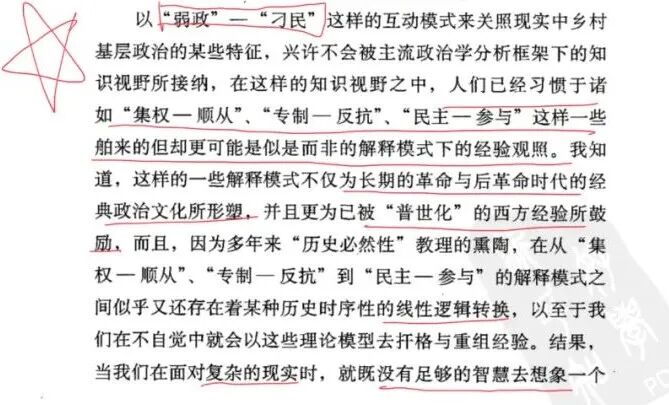 以“弱政”—“刁民”这样的互动模式来关照现实中乡村
基层政治的某些特征，兴许不会被主流政治学分析框架下的知
识视野所接纳，在这样的知识视野之中，人们已经习惯于诸
如“集权—顺从”、“专制—反抗”、“民主—参与”这样一些
舶来的但却更可能是似是而非的解释模式下的经验观照。我知
道，这样的一些解释模式不仅为长期的革命与后革命时代的经
典政治文化所形塑，并且更为已被“普世化”的西方经验所鼓
励，而且，因为多年来“历史必然性”教理的熏陶，在从“集
权—顺从”、“专制—反抗”到“民主—参与”的解释模式之
间似乎又还存在着某种历史时序性的线性逻辑转换，以至于我
们在不自觉中就会以这些理论模型去扞格与重组经验。结果，
当我们在面对复杂的现实时，就既没有足够的智慧去想象一个